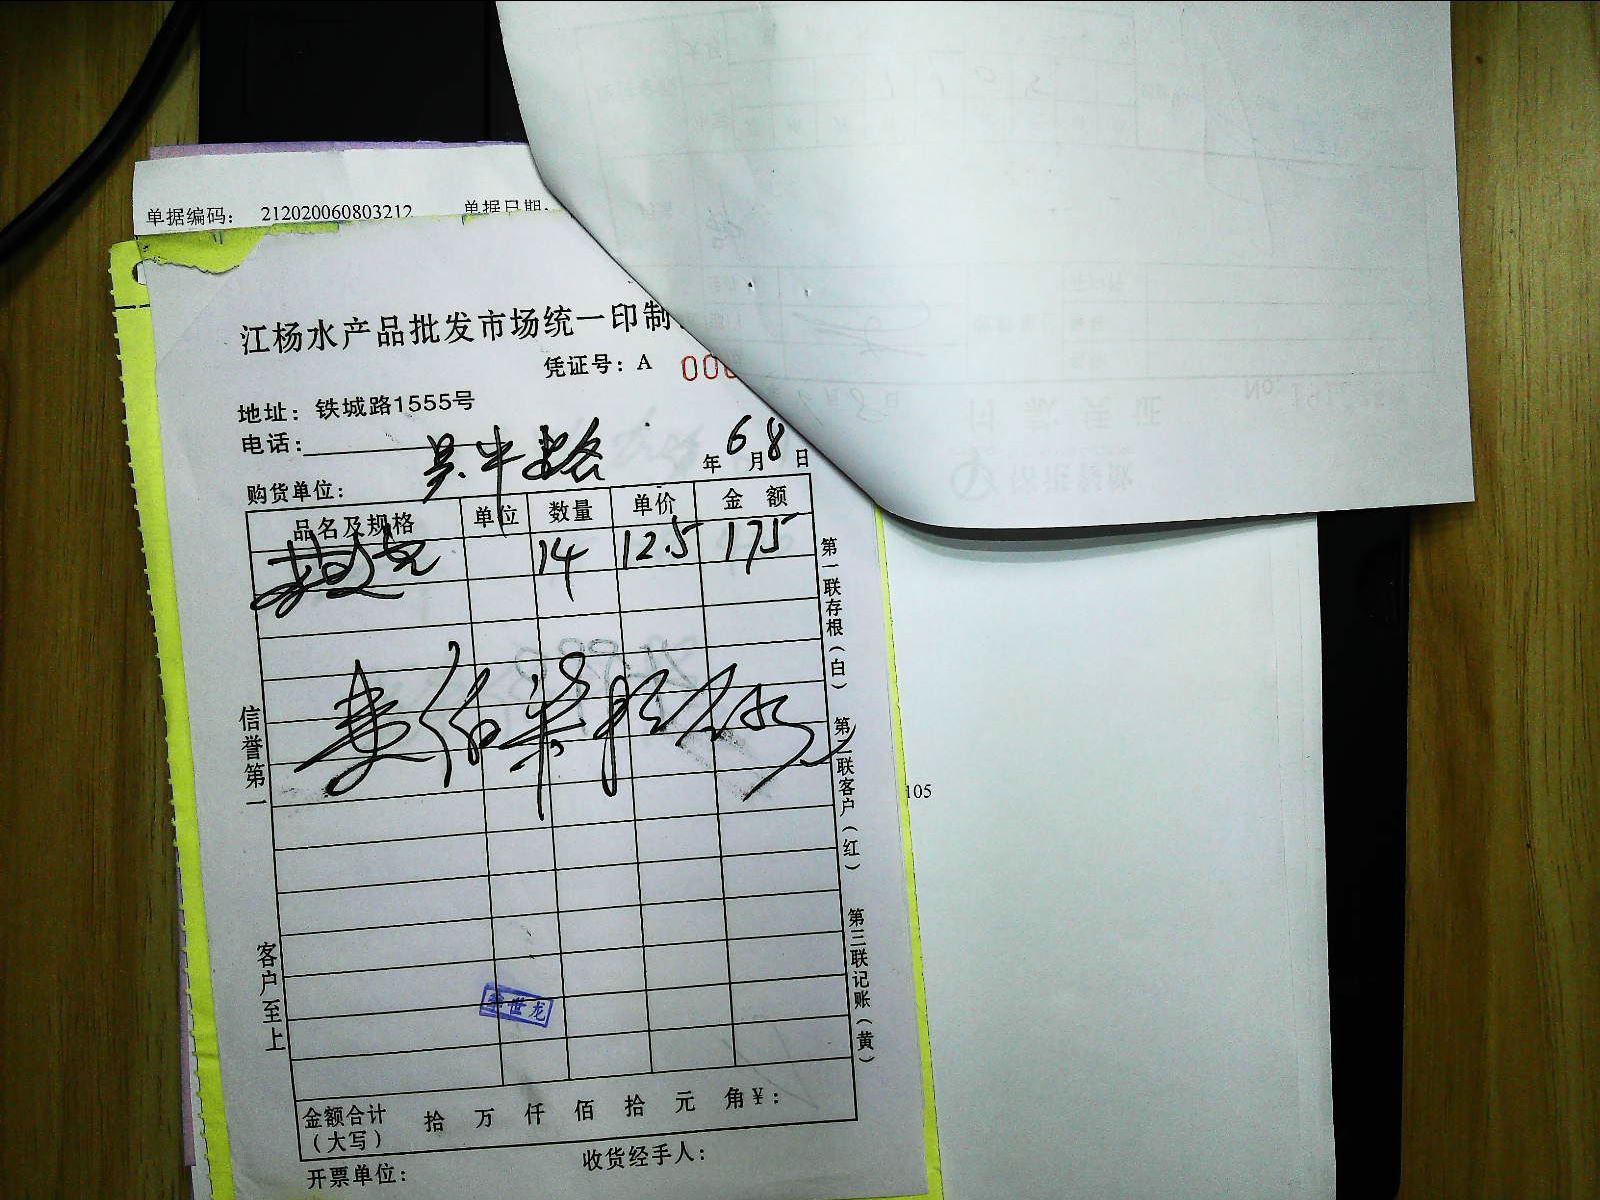 单据编码： 212020060803212 单据日期:
江杨水产品批发市场统一印制
凭证号：A 000
地址：铁城路1555号
电话:
购货单位： 吴中路 年6月8日
品名及规格 单位 数量 单价 金 额
14 12.5 175
壹佰柒拾伍元
第一联存根（白）
第二联客户（红）
第三联记账（黄）
信誉第一
客户至上
105
世龙
金额合计（大写） 拾 万 仟 佰 拾 元 角¥：
开票单位： 收货经手人：